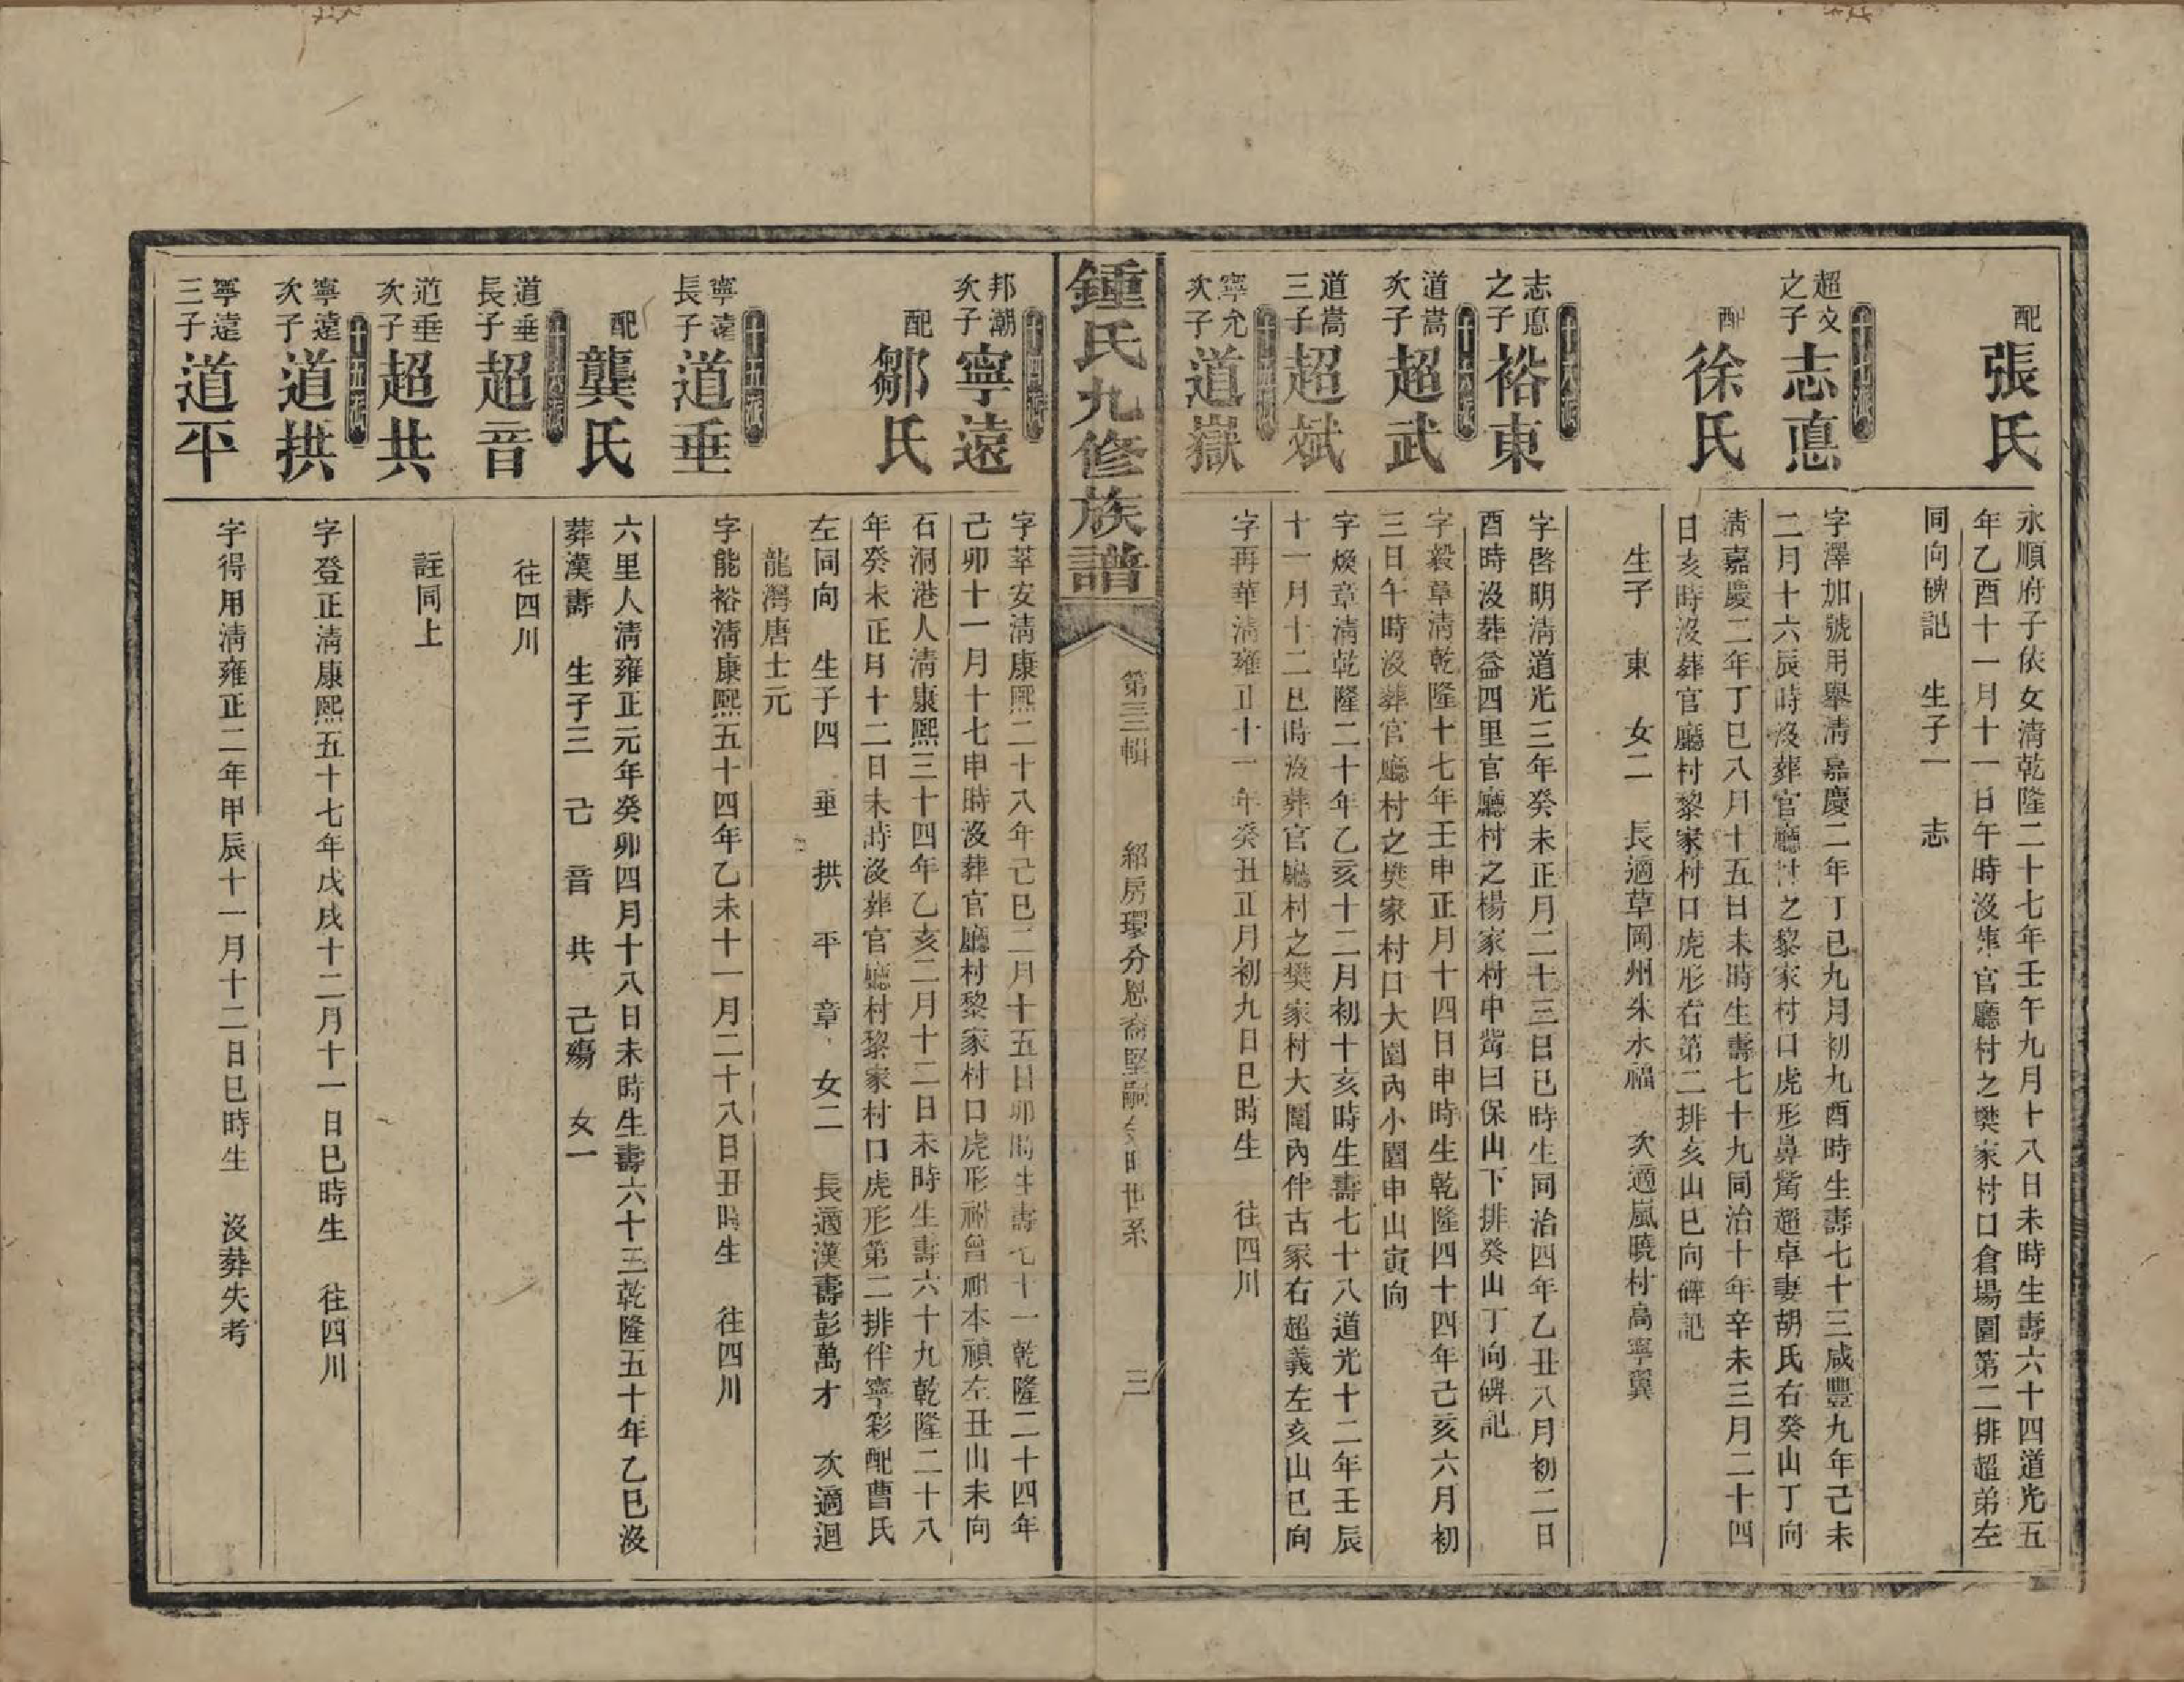 配
張氏
永順府子依女淸乾隆二十七年壬午九月十八日未時生壽六十四道光五
年乙酉十一月十一日午時沒葬官廳村之樊家村口倉場園第二排超弟左
同向碑記　生子一　志
十七派
超文
之子
志悳
字澤加號用舉淸嘉慶二年丁巳九月初九酉時生壽七十三咸豐九年己未
二月十六辰時沒葬官廳村之黎家村口虎形鼻觜超卓妻胡氏右癸山丁向
配
徐氏
淸嘉慶二年丁巳八月十五日未時生壽七十九同治十年辛未三月二十四
日亥時沒葬官廳村黎家村口虎形右第二排亥山巳向碑記
生子　東　女二　長適草岡州朱水福　次適嵐曉村高寧冀
十八派
志悳
之子
裕東
字啓明淸道光三年癸未正月二十三日巳時生同治四年乙丑八月初二日
酉時沒葬益四里官廳村之楊家村申觜曰保山下排癸山丁向碑記
十六派
道嵩
次子
超武
字毅章淸乾隆十七年壬申正月十四日申時生乾隆四十四年己亥六月初
三日午時沒葬官廳村之樊家村口大園內小園申山寅向
道嵩
三子
超斌
字煥章淸乾隆二十年乙亥十二月初十亥時生壽七十八道光十二年壬辰
十一月十二巳時沒葬官廳村之樊家村大園內伴古冢右超義左亥山巳向
十五派
寧允
次子
道嶽
字再華淸雍正十一年癸丑正月初九日巳時生　往四川
鍾氏九修族譜
第三輯　紹房環分恩裔堅嗣　世系　三
十四派
邦潮
次子
寧遠
字萃安淸康熙二十八年己巳二月十五日卯時生壽七十一乾隆二十四年
己卯十一月十七申時沒葬官廳村黎家村口虎形祔曾祖本禎左丑山未向
配
鄒氏
石洞港人淸康熙三十四年乙亥二月十二日未時生壽六十九乾隆二十八
年癸未正月十二日未時沒葬官廳村黎家村口虎形第二排伴寧彩配曹氏
左同向　生子四　垂　拱　平　章　女二　長適漢壽彭萬才　次適迴
龍灣唐士元
十五派
寧遠
長子
道垂
字能裕淸康熙五十四年乙未十一月二十八日丑時生　往四川
配
龔氏
六里人淸雍正元年癸卯四月十八日未時生壽六十三乾隆五十年乙巳沒
葬漢壽　生子三　己　音　共　己殤　女一
十六派
道垂
長子
超音
往四川
道垂
次子
超共
註同上
十五派
寧遠
次子
道拱
字登正淸康熙五十七年戊戌十二月十一日巳時生　往四川
寧遠
三子
道平
字得用淸雍正二年甲辰十一月十二日巳時生　沒葬失考